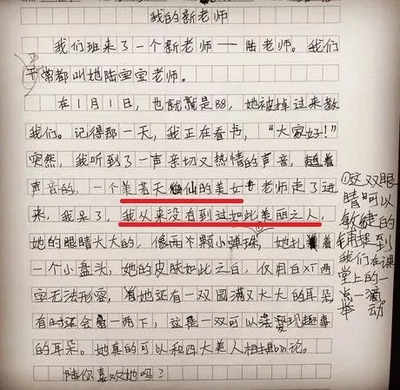 我的新老师
我们班来了一个新老师——陆老师。我们
平常都叫她陆宝宝老师。
在1月1日，也就是88，她被择过来教
我们。记得那一天，我正在看书，“大家好！”
突然，我听到了一声亲切又热情的声音，随着
声音的，一个美若天仙的美女老师走了进
来，我呆了，我从来没有到过如此美丽之人，
她的眼睛大大的，像两个颗小弹珠，她扎着
一个小盘头，她的皮肤如此之白，仅用白XT两
字无法形容，她还有一双圆满又大大的耳朵
有时还会一两下，这是一双可以发现趣事
的耳朵。她真的可以和四大美人相提论。
陆你喜欢她吗？
①这双眼
睛可以
敏捷的
捕捉到
我们在课
堂上的一
点一滴
举动